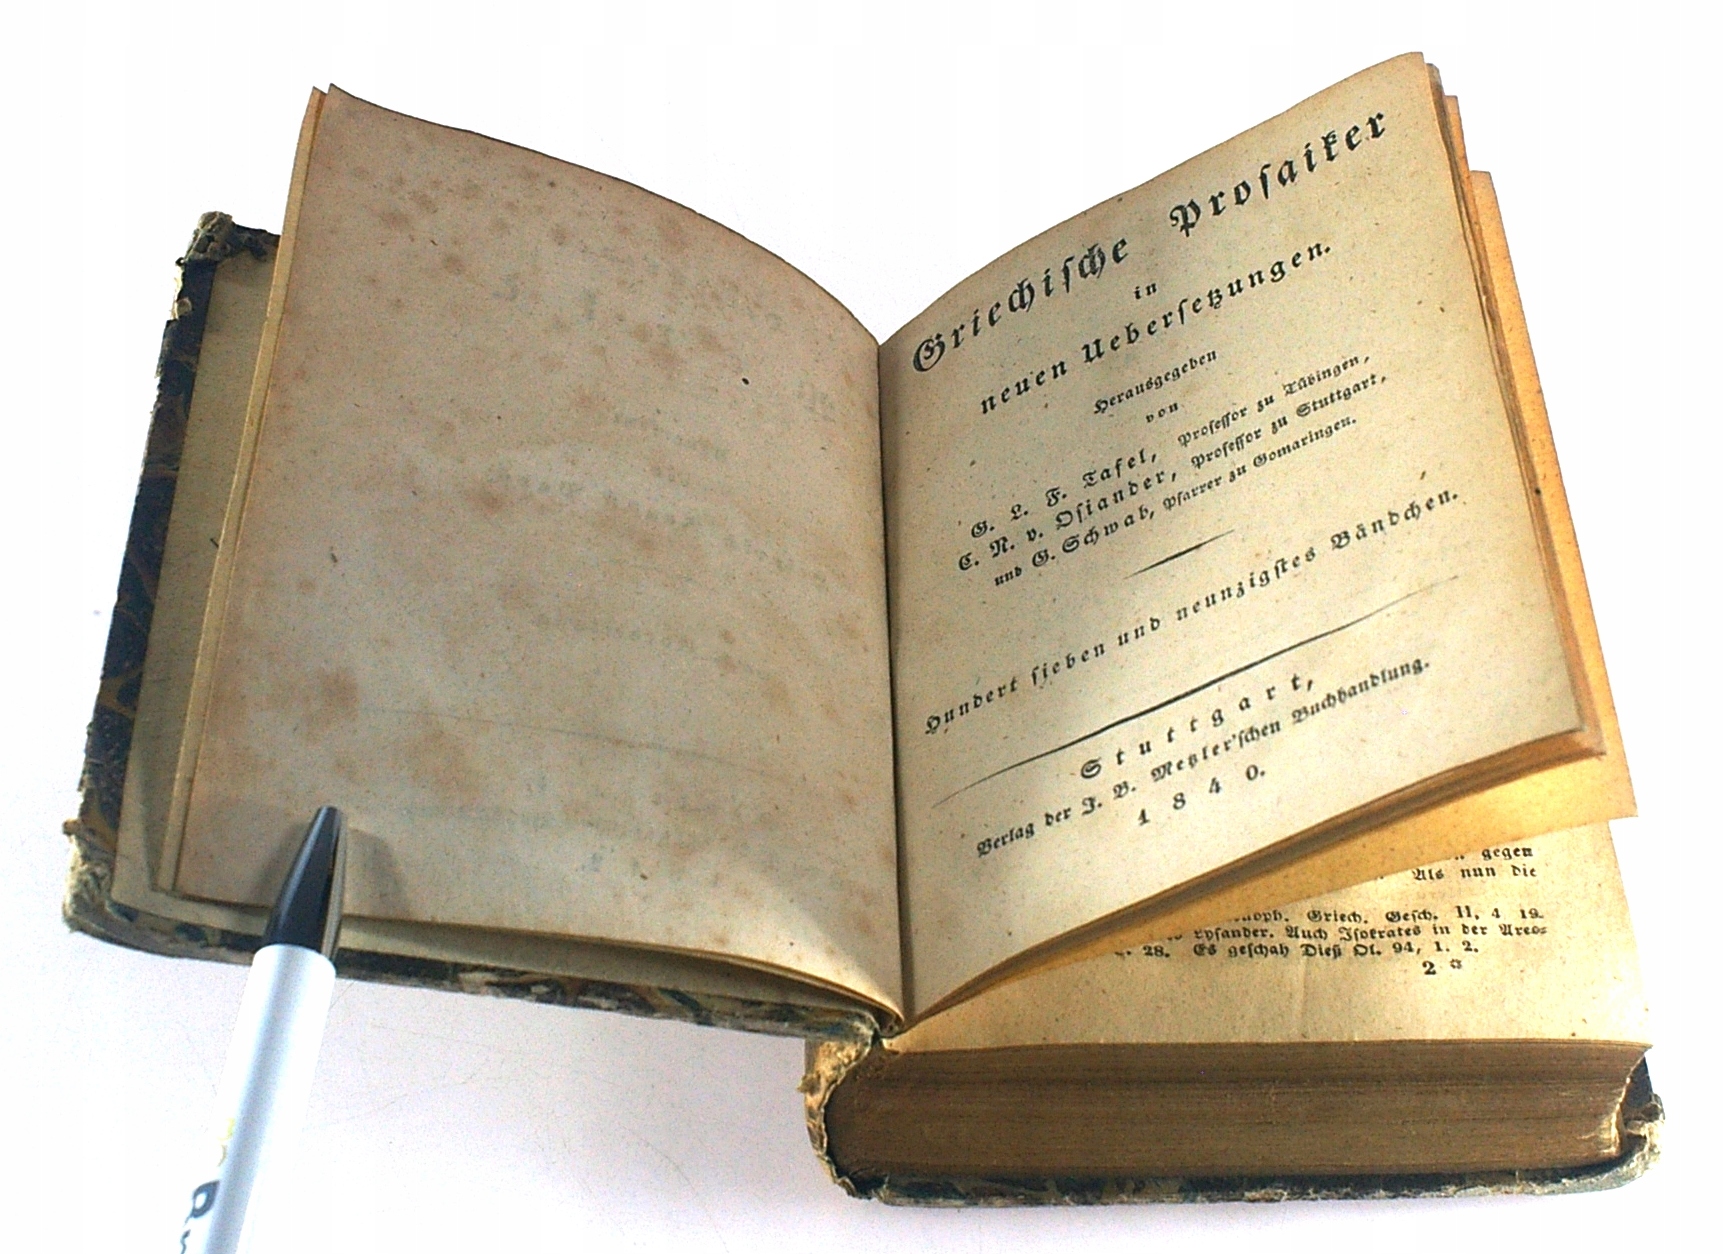 Griechische Prosaiker
in
neuen Uebersetzungen.
Herausgegeben
von
G. L. F. Tafel, Professor zu Tübingen,
C. N. v. Osiander, Professor zu Stuttgart,
und G. Schwab, Pfarrer zu Gomaringen.
Hundert sieben und neunzigstes Bändchen.
Stuttgart,
Verlag der J. B. Metzler'schen Buchhandlung.
1840.
gegen
Als nun die
Griech. Gesch. II, 4 19.
Lysander. Auch Isokrates in der Areo=
28. Es geschah Dieß Ol. 94, 1. 2.
2 *